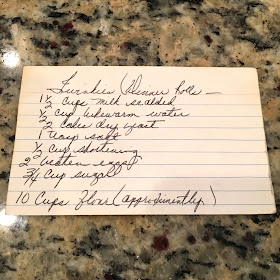 Dinner Rolls —
1½ cups milk scalded
½ cup lukewarm water
2 cakes dry yeast
1 salt
½ cup shortening
2 beaten eggs
3/4 cup sugar
10 Cups Flour (approximently)